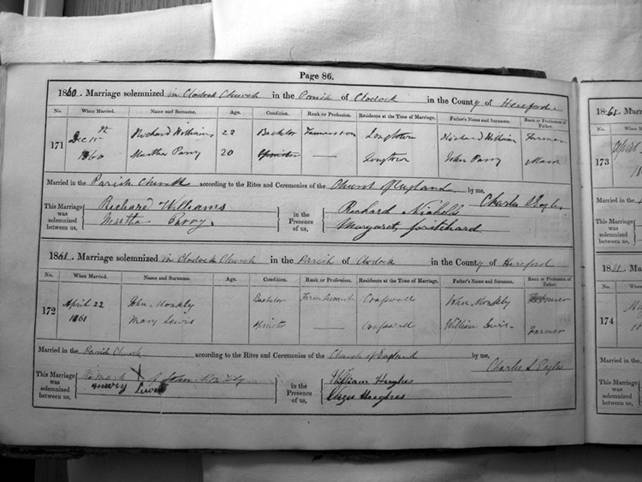 Page 86.
1860. Marriage solemnized in Clodock Church in the Parish of Clodock in the County of Hereford
No. When Married. Name and Surname. Age. Condition. Rank or Profession. Residence at the Time of Marriage. Father's Name and Surname. Rank or Profession of Father.
171 Dec 15th 1860 Richard Williams 22 Bachelor Longtown Richard Williams Farmer
Martha Parry 20 Spinster — Longtown John Parry Mason
Married in the Parish Church according to the Rites and Ceremonies of the Church of England by me,
Charles L Eagles
This Marriage was solemnized between us, Richard Williams in the Presence of us, Richard Nicholls
Martha Parry. Margaret Pritchard
1861. Marriage solemnized in Clodock Church in the Parish of Clodock in the County of Hereford
No. When Married. Name and Surname. Age. Condition. Rank or Profession. Residence at the Time of Marriage. Father's Name and Surname. Rank or Profession of Father.
172 April 22 1861 John Bachelor Farm Servant John
Mary Lewis Spinster — William Lewis Farmer
Married in the Parish Church according to the Rites and Ceremonies of the Church of England by me,
Charles L Eagles
This Marriage was solemnized between us, John in the Presence of us, William Hughes
Mary Lewis Hughes
1861.
No.
173
1861.
No.
174